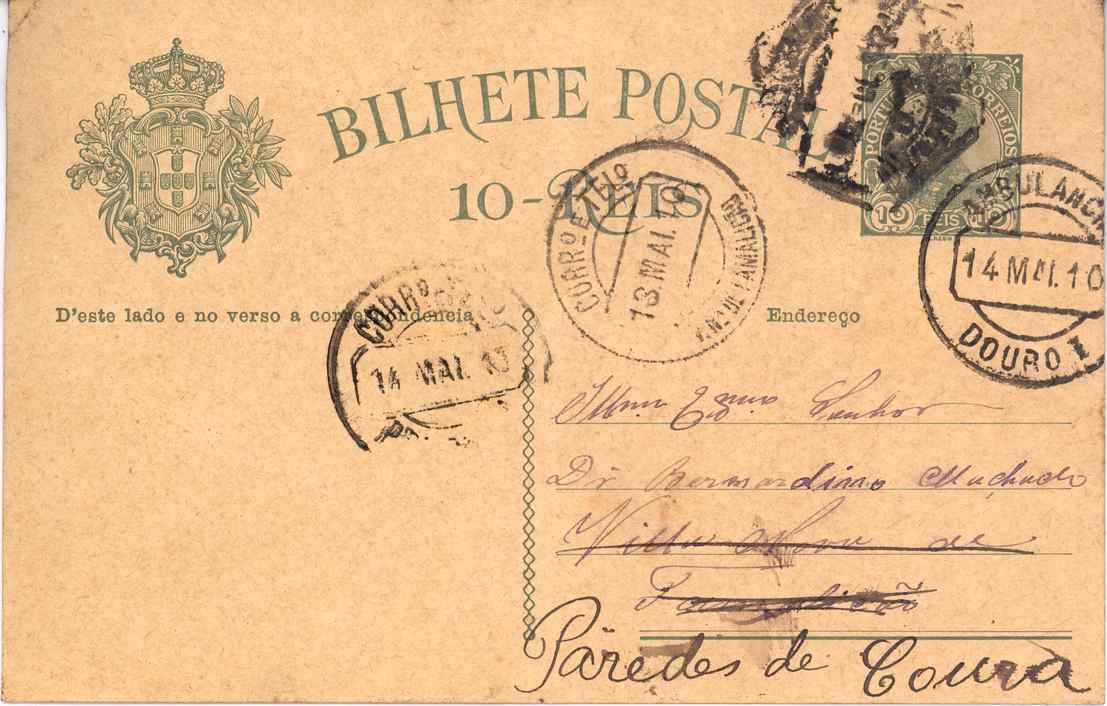 BILHETE POSTAL
10-REIS
PORTUGAL CORREIOS
10 REIS 10
D'este lado e no verso a correspondencia
Endereço
CORRº E TELº
13 MAI. 10
Vª Nª DE FAMALICÃO
AMBULANCIA
14 MAI. 10
DOURO I
CORRº
14 MAI. 10
Illmo Exmo Senhor
Dr Bernardino Machado
Villa Nova de
Famalicão
Paredes de Coura